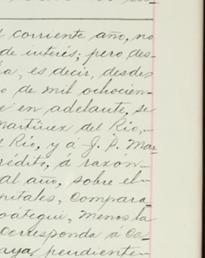 l corriente año, no
de interés; pero des
a, es decir, desde
o de mil ochocien-
e en adelante, se
Martinez del Rio,
l Rio, y á J. P. Mar
rédito, á razon
al año, sobre el
pitales, Compara
oategui, menos la
corresponda á Ce
aya, pendiente